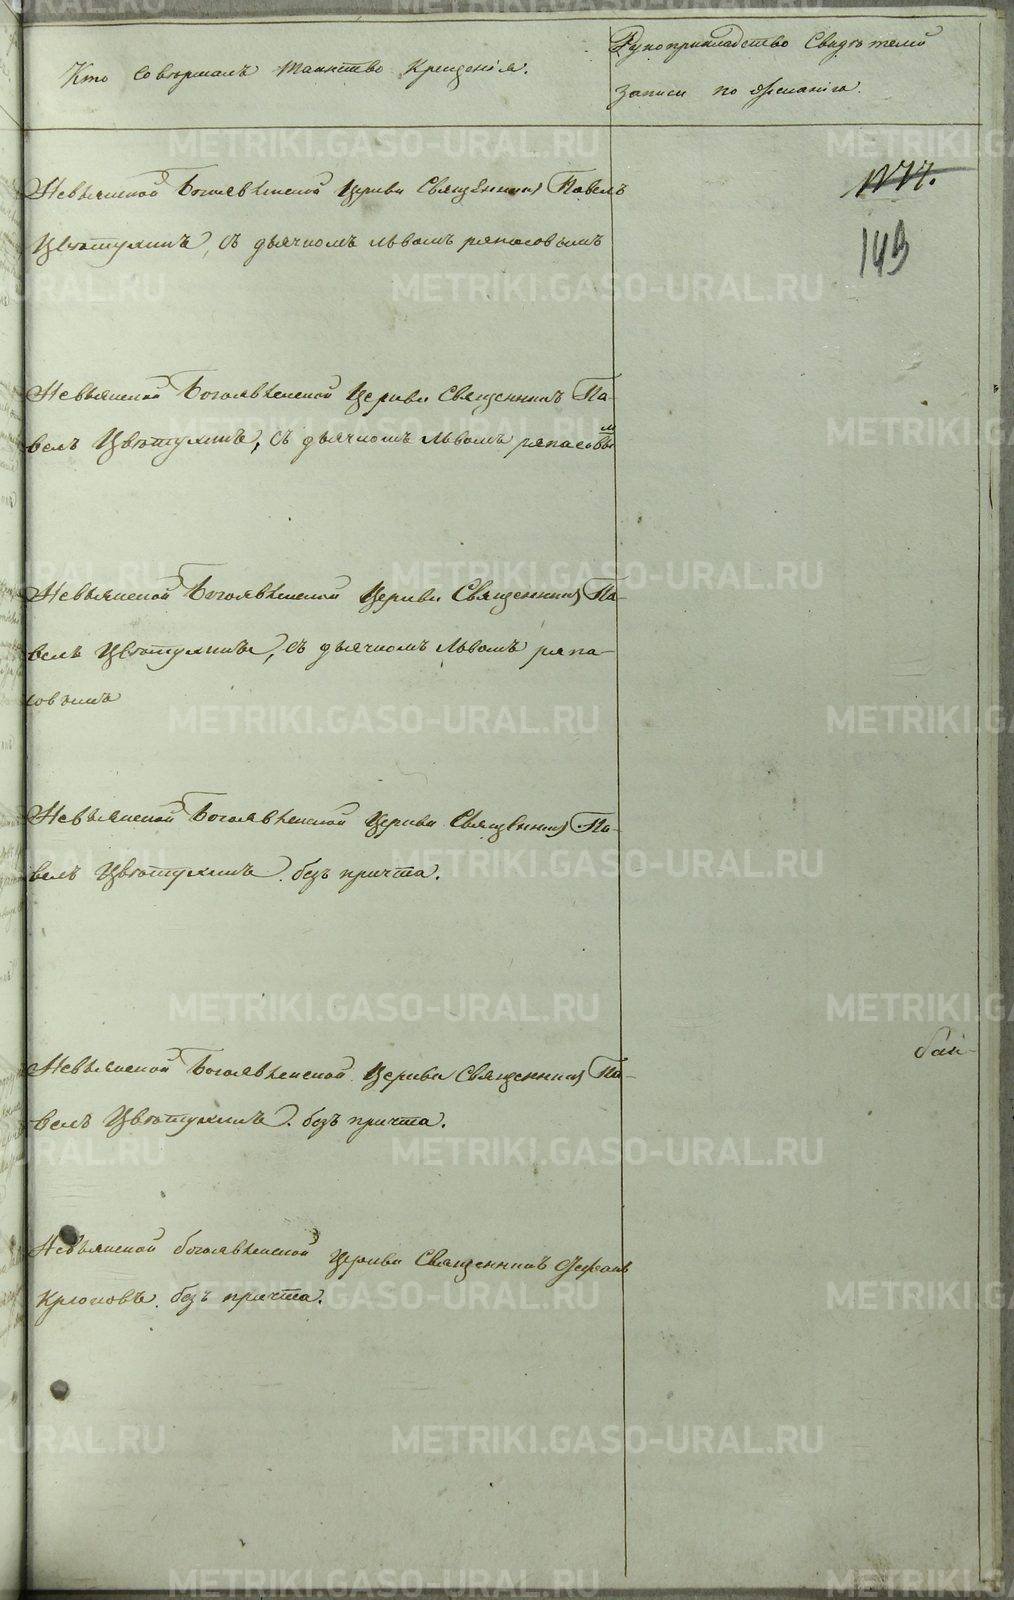 Кто совершалъ таинство Крещенія.
Рукоприкладство Свидѣтелей
записи по желанію.
Невьянской Богоявленской Церкви Священникъ Павелъ
Цвѣтухинъ, съ дьячкомъ Львомъ ряпасовымъ
149
Невьянской Богоявленской Церкви Священникъ Па-
велъ Цвѣтухинъ, съ дьячкомъ Львомъ ряпасовым
Невьянской Богоявленской Церкви Священникъ Па-
велъ Цвѣтухинъ, съ дьячкомъ Львомъ ряпа-
совымъ
Невьянской Богоявленской Церкви Священникъ Па-
велъ Цвѣтухинъ. безъ причта.
Невьянской Богоявленской Церкви Священникъ Па-
велъ Цвѣтухинъ. безъ причта.
Невьянской богоявленской Церкви Священникъ
безъ причта.
METRIKI.GASO-URAL.RU